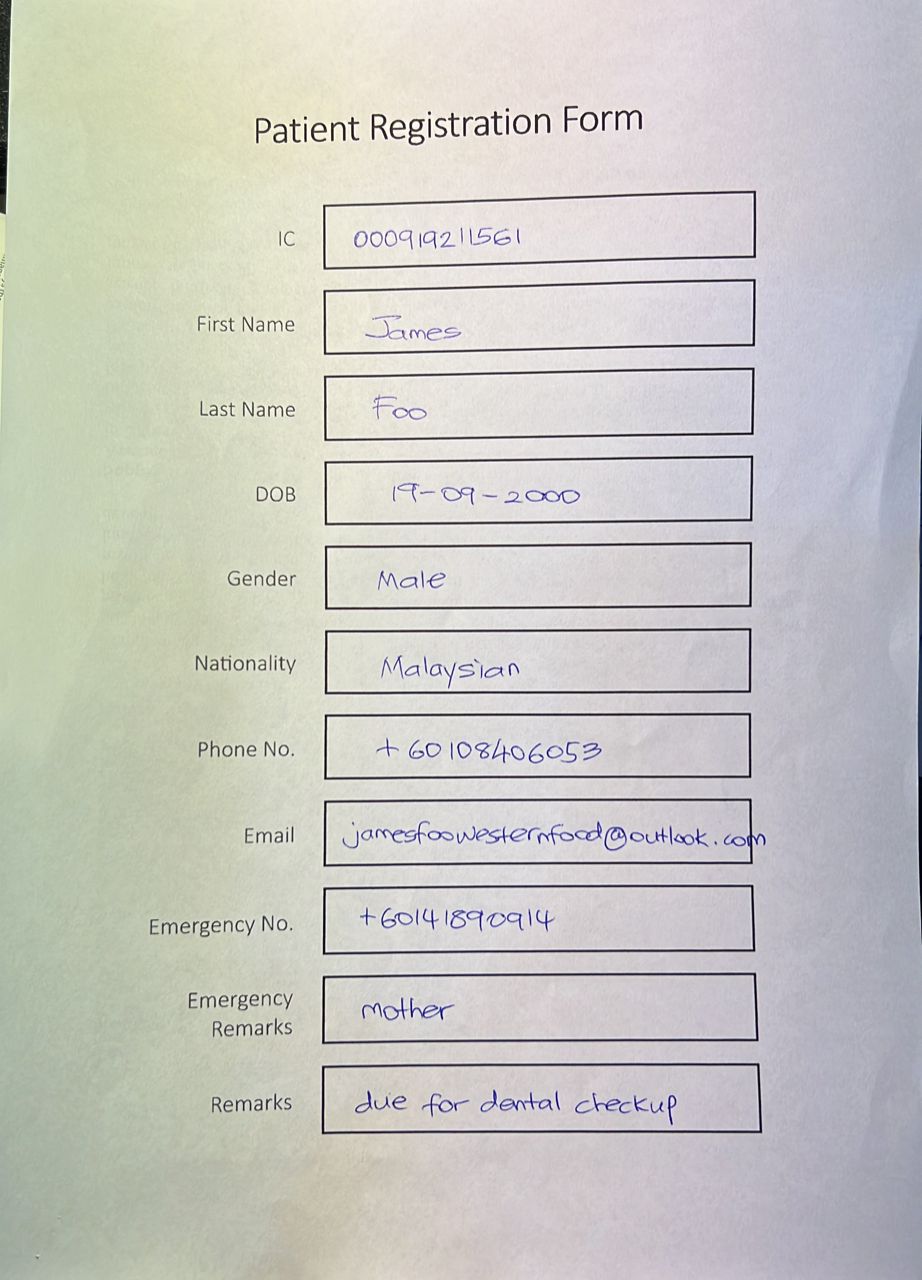 Patient Registration Form
IC 000919211561
First Name James
Last Name Foo
DOB 19-09-2000
Gender Male
Nationality Malaysian
Phone No. +60108406053
Email jamesfoowesternfood@outlook.com
Emergency No. +60141890914
Emergency
Remarks mother
Remarks due for dental checkup